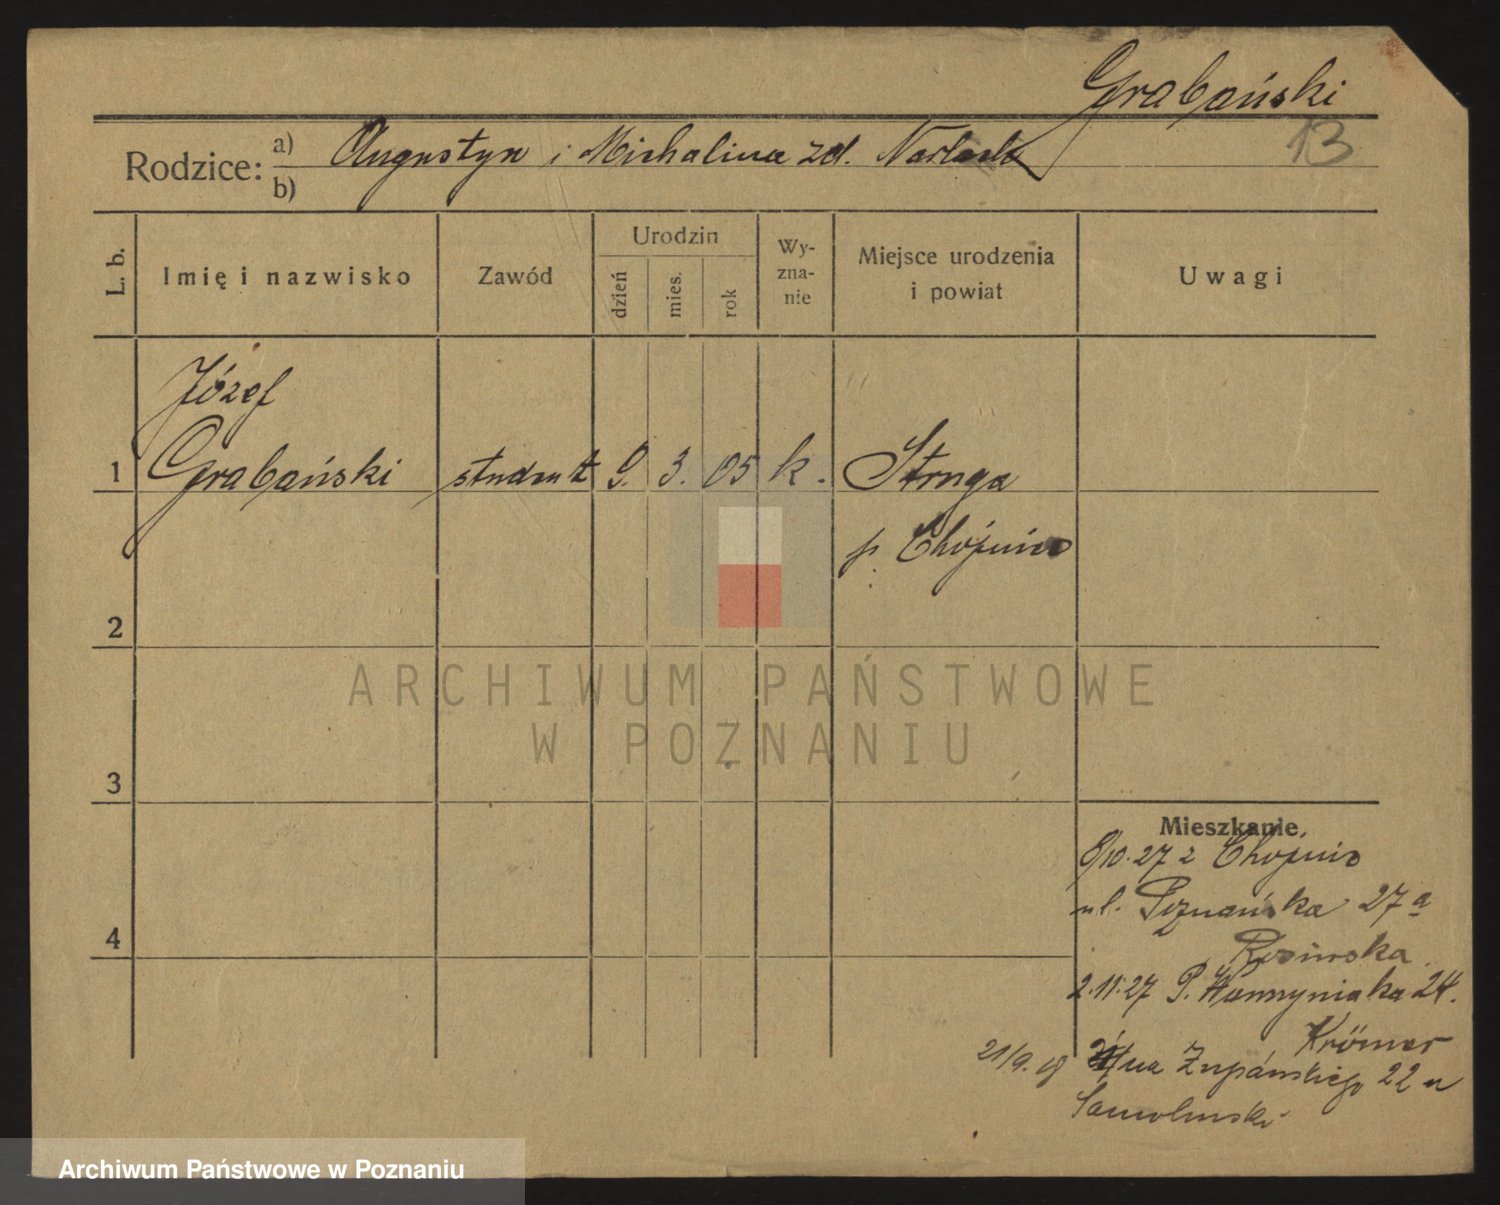 Grabański
13
Rodzice: a) Augustyn i Michalina zd.
b)
L. b.
Imię i nazwisko
Zawód
Urodzin
dzień
mies.
rok
Wy-
zna-
nie
Miejsce urodzenia
i powiat
Uwagi
Józef
1 Grabański student 9. 3. 05 k. Struga
p. Chojnice
2
3
4
Mieszkanie.
8/10.27 z Chojnic
ul. Poznańska 27a
2.11.27 P. 24.
Krömer
21/9. na Żupańskiego 22 u
Samolinski
ARCHIWUM PAŃSTWOWE
W POZNANIU
Archiwum Państwowe w Poznaniu